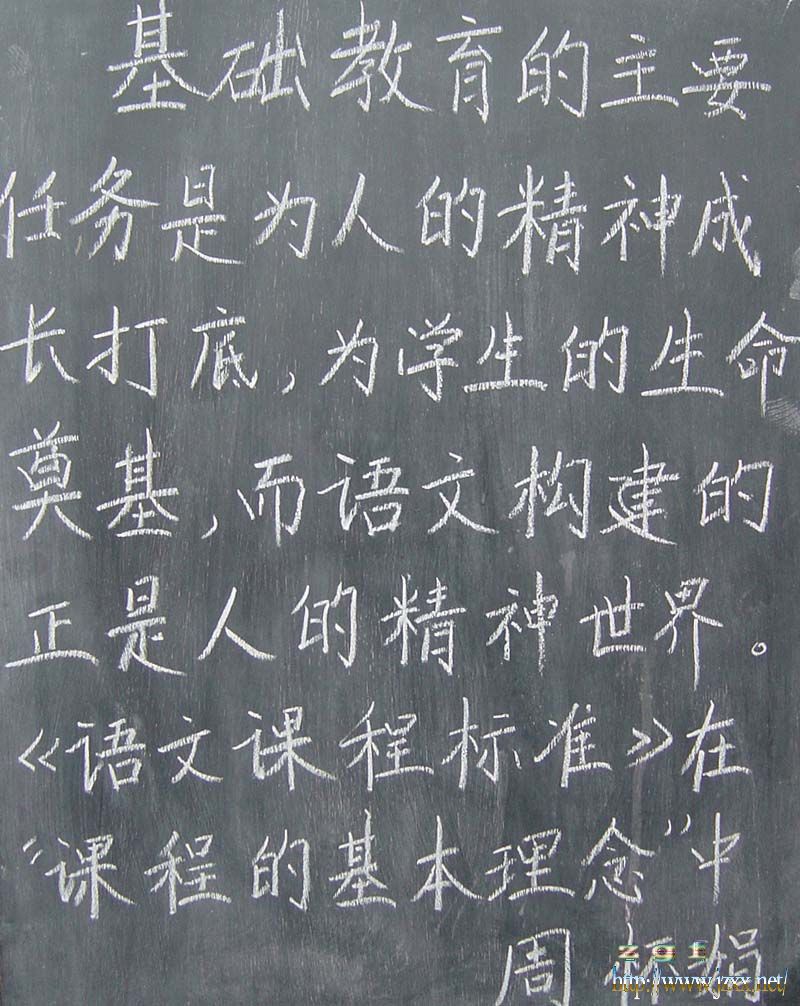 基础教育的主要
任务是为人的精神成
长打底,为学生的生命
奠基,而语文构建的
正是人的精神世界。
《语文课程标准》在
“课程的基本理念”中
周 娟
http://www.jzxx.net/